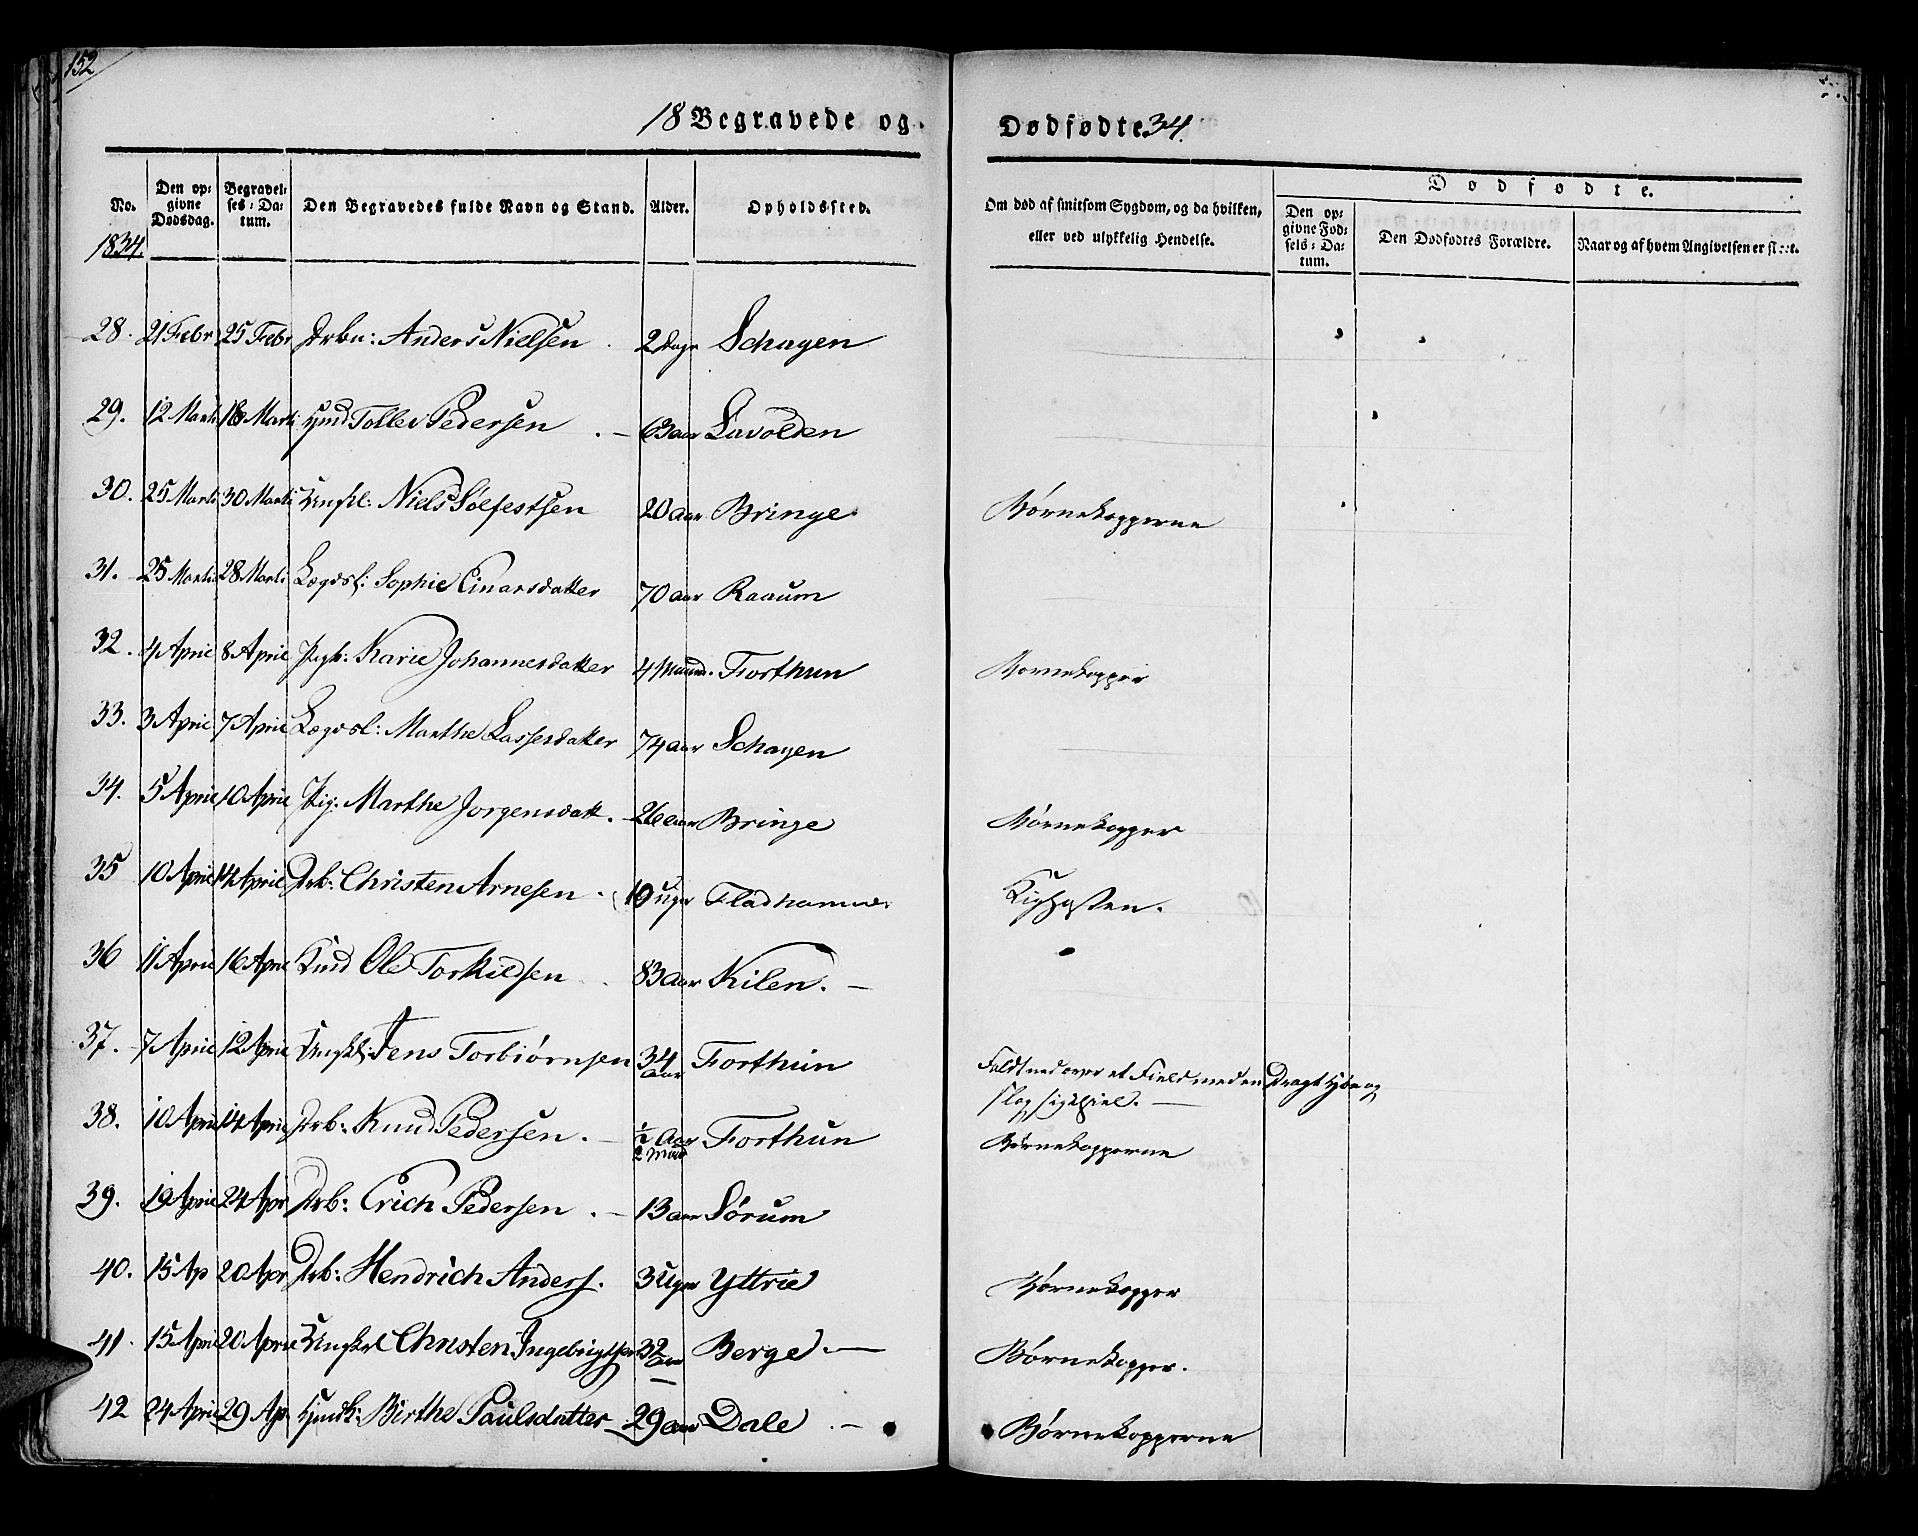 152
18 Begravede og Dødfødte 34.
No. Den opgivne Dødsdag. Begravelses-Datum. Den Begravedes fulde Navn og Stand. Alder. Opholdssted. Om død af smitsom Sygdom, og da hvilken, eller ved ulykkelig Hendelse. Dødfødte.
Den opgivne Fødsels-Datum. Den Dødfødtes Forældre. Naar og af hvem Angivelsen er skeet.
1834.
28. 21 Febr 25 Febr Drbn: Anders Nielsen 2 Dage Schagen
29. 12 Marti 18 Marti Hmd Tollev Pedersen 63 aar Lavolden
30. 25 Marti 30 Marti Ungkl: Niels Sølfestsen 20 aar Bringe Børnekopperne
31. 25 Marti 28 Marti Lægdsl: Sophie Einarsdatter 70 aar Raaum
32. 4 April 8 April Pigb: Karie Johannesdatter 4 Maaned. Forthun Børnekopper
33. 3 April 7 April Lægdsl: Marthe Lassesdatter 74 aar Schagen
34. 5 April 10 April Pig: Marthe Jørgensdatt. 26 aar Bringe Børnekopper
35 10 April 14 April Drb: Christen Arnesen 10 Uger Fladhamer Kighosten.
36 11 April 16 April Kmd Ole Torkildsen 83 aar Kilen.
37. 7 April 12 April Ungkl: Jens Torbiørnsen 34 aar Forthun Faldt ned over et Field med en Dragt Høe og
slog sig ihiel.
38. 10 April 14 April Drb: Knud Pedersen ½ Aar 2 Mdr Forthun Børnekopperne
39. 19 April 24 Apr Drb: Erich Pedersen 13 aar Sørum
40. 15 Ap 20 Apr Drb: Hendrich Anders. 3 Uger Yttrie Børnekopper
41. 15 April 20 April Ungkrl Christen Ingebrigtsen 32 aar Berge Børnekopper.
42 24 April 29 Ap Hmdk: Birthe Paulsdatter 29 aar Dale Børnekopperne